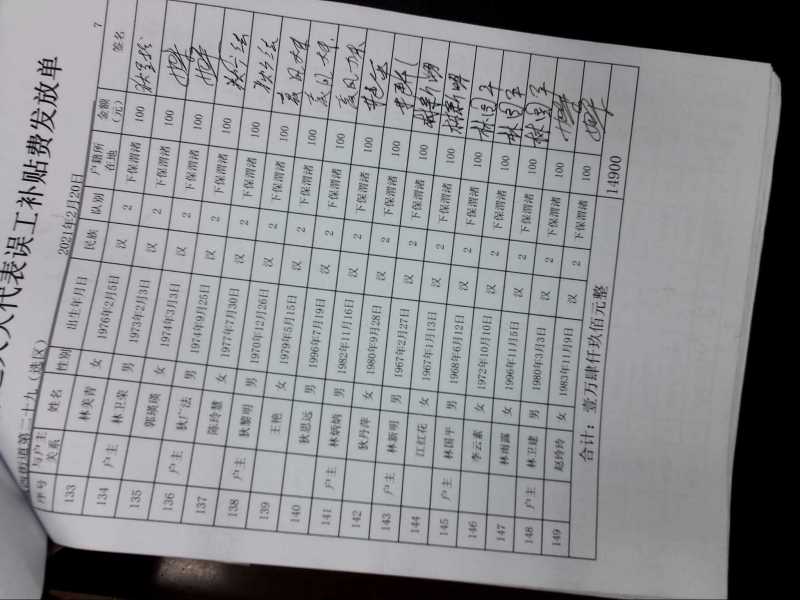 人大代表误工补贴费发放单
街道第二十九（选区） 2021年2月20日 7
序号 与户主关系 姓名 性别 出生年月日 民族 队别 户籍所在地 金额（元） 签名
133 林美青 女 1976年2月5日 汉 2 下保渭渚 100
134 户主 林卫荣 男 1973年2月3日 汉 2 下保渭渚 100
135 郭瑛瑛 女 1974年3月3日 汉 2 下保渭渚 100
136 户主 狄广法 男 1974年9月25日 汉 2 下保渭渚 100
137 陈玲慧 女 1977年7月30日 汉 2 下保渭渚 100
138 户主 狄黎明 男 1970年12月26日 汉 2 下保渭渚 100
139 王艳 女 1979年5月15日 汉 2 下保渭渚 100
140 狄思远 男 1996年7月19日 汉 2 下保渭渚 100
141 户主 林炳炳 男 1982年11月16日 汉 2 下保渭渚 100
142 狄丹萍 女 1980年9月28日 汉 2 下保渭渚 100
143 户主 林新明 男 1967年2月27日 汉 2 下保渭渚 100
144 江红花 女 1967年1月13日 汉 2 下保渭渚 100 林新明
145 户主 林国平 男 1968年6月12日 汉 2 下保渭渚 100 林国平
146 李云素 女 1972年10月10日 汉 2 下保渭渚 100 林国平
147 林雨露 女 1996年11月5日 汉 2 下保渭渚 100 林国平
148 户主 林卫建 男 1980年3月3日 汉 2 下保渭渚 100
149 赵玲玲 女 1983年11月9日 汉 2 下保渭渚 100
合计：壹万肆仟玖佰元整 14900